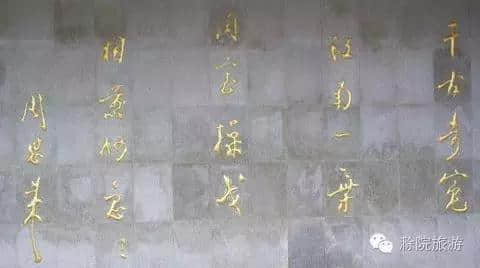 千古奇冤
江南一葉
同室操戈
相煎何急
周恩来
滁院旅游